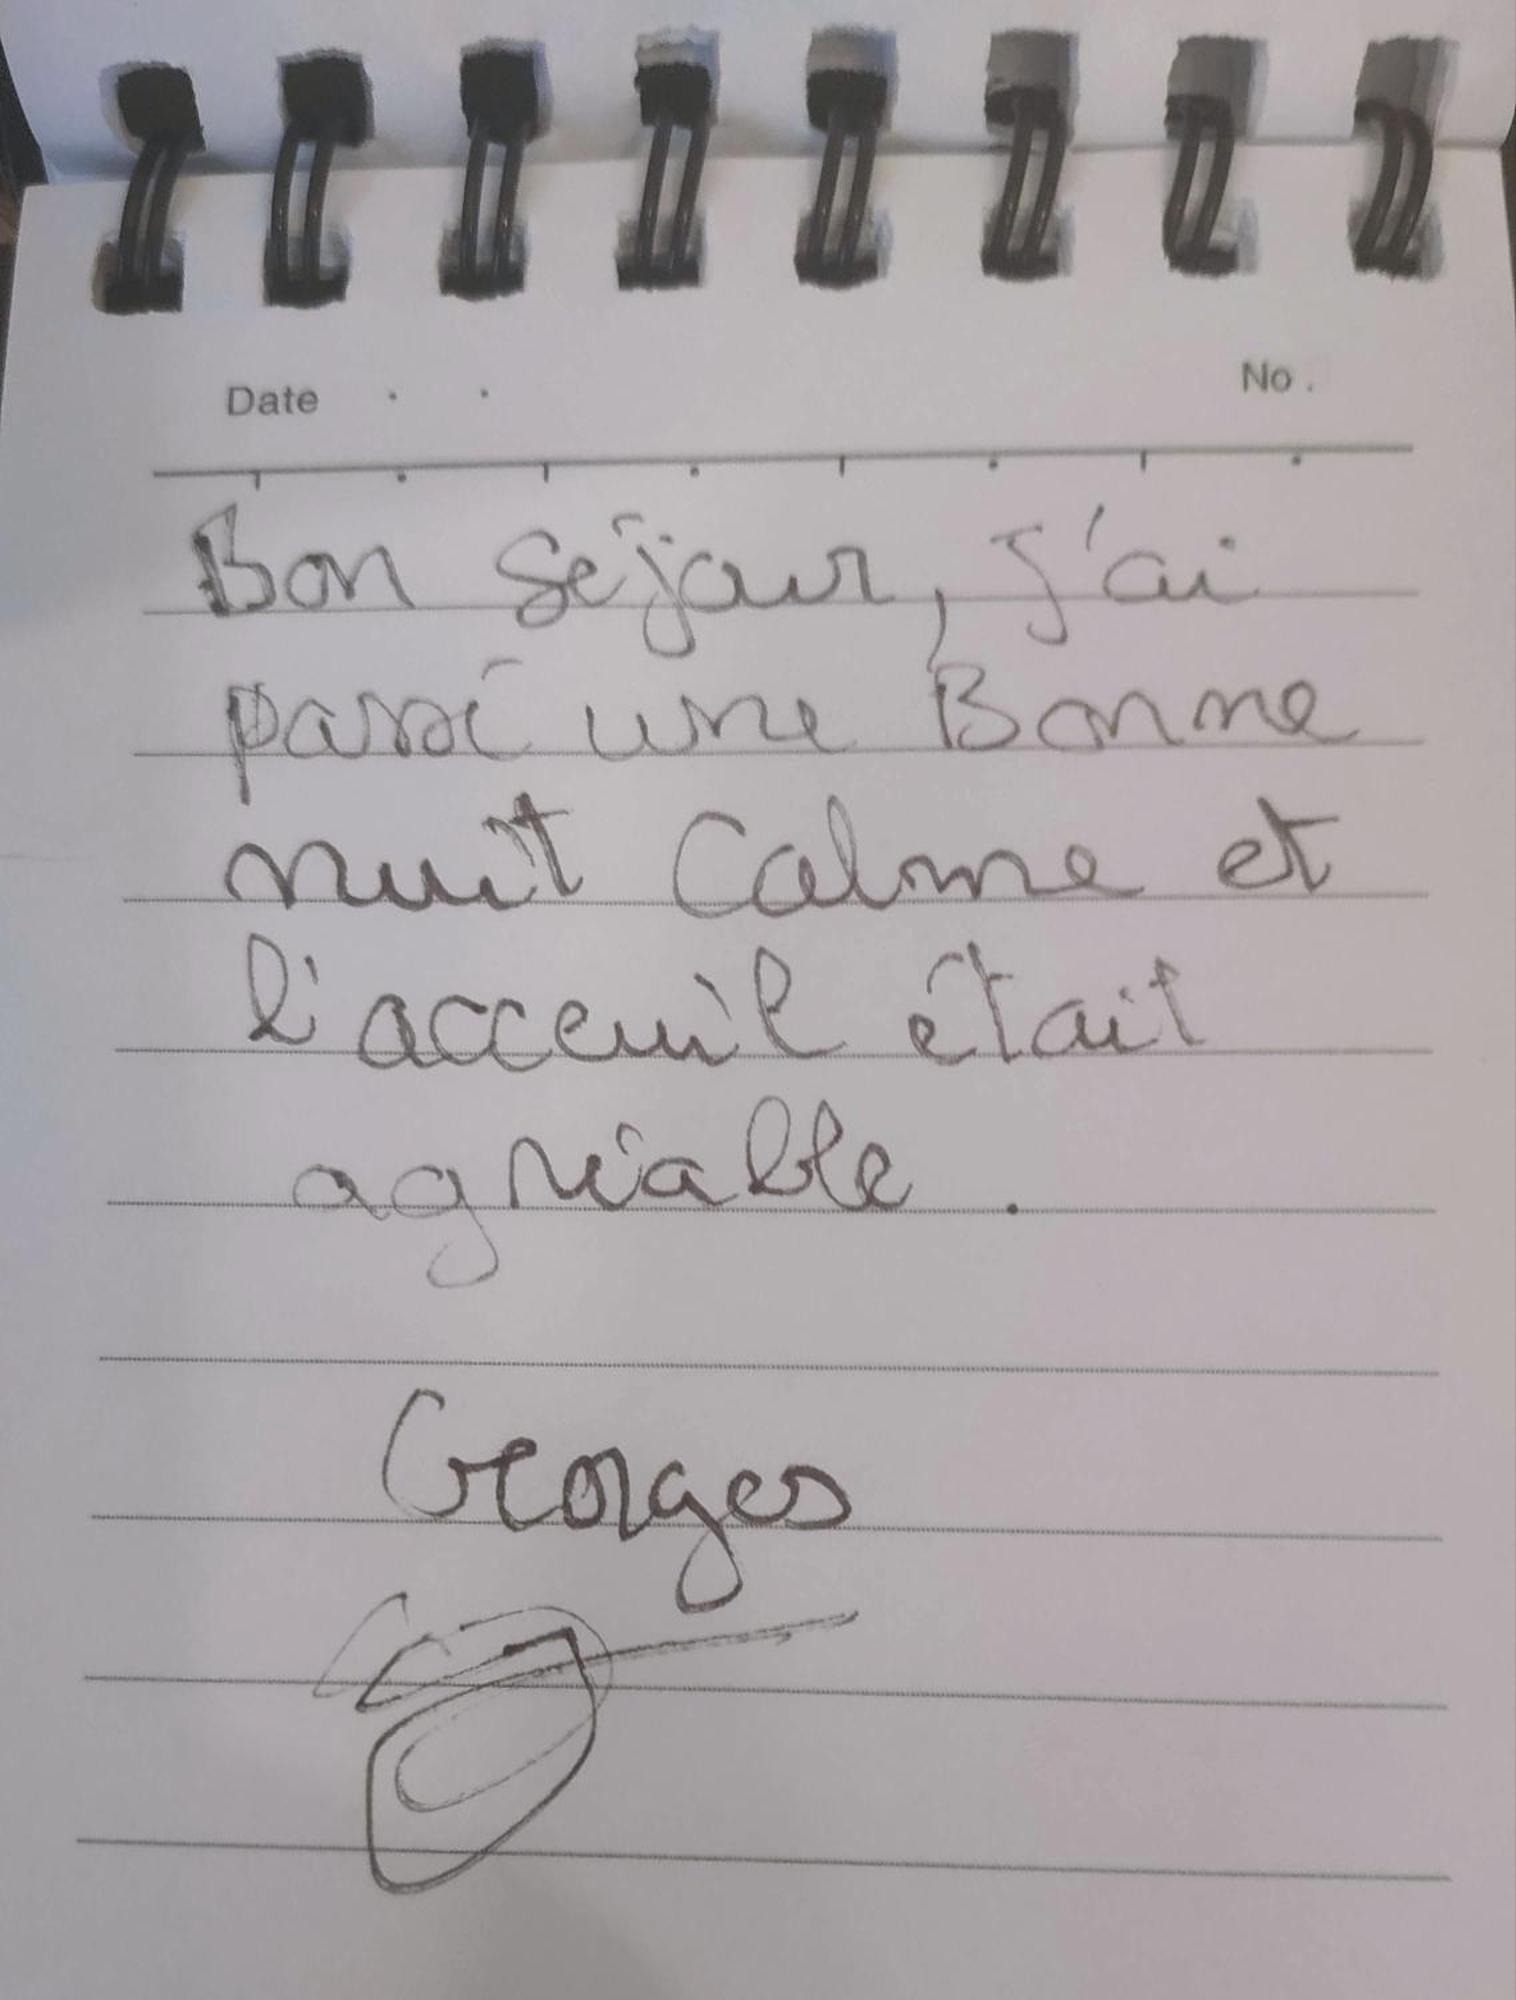 Date . .
No.
Bon séjour, j'ai
passé une Bonne
nuit Calme et
l'acceuil était
agréable .
Georges